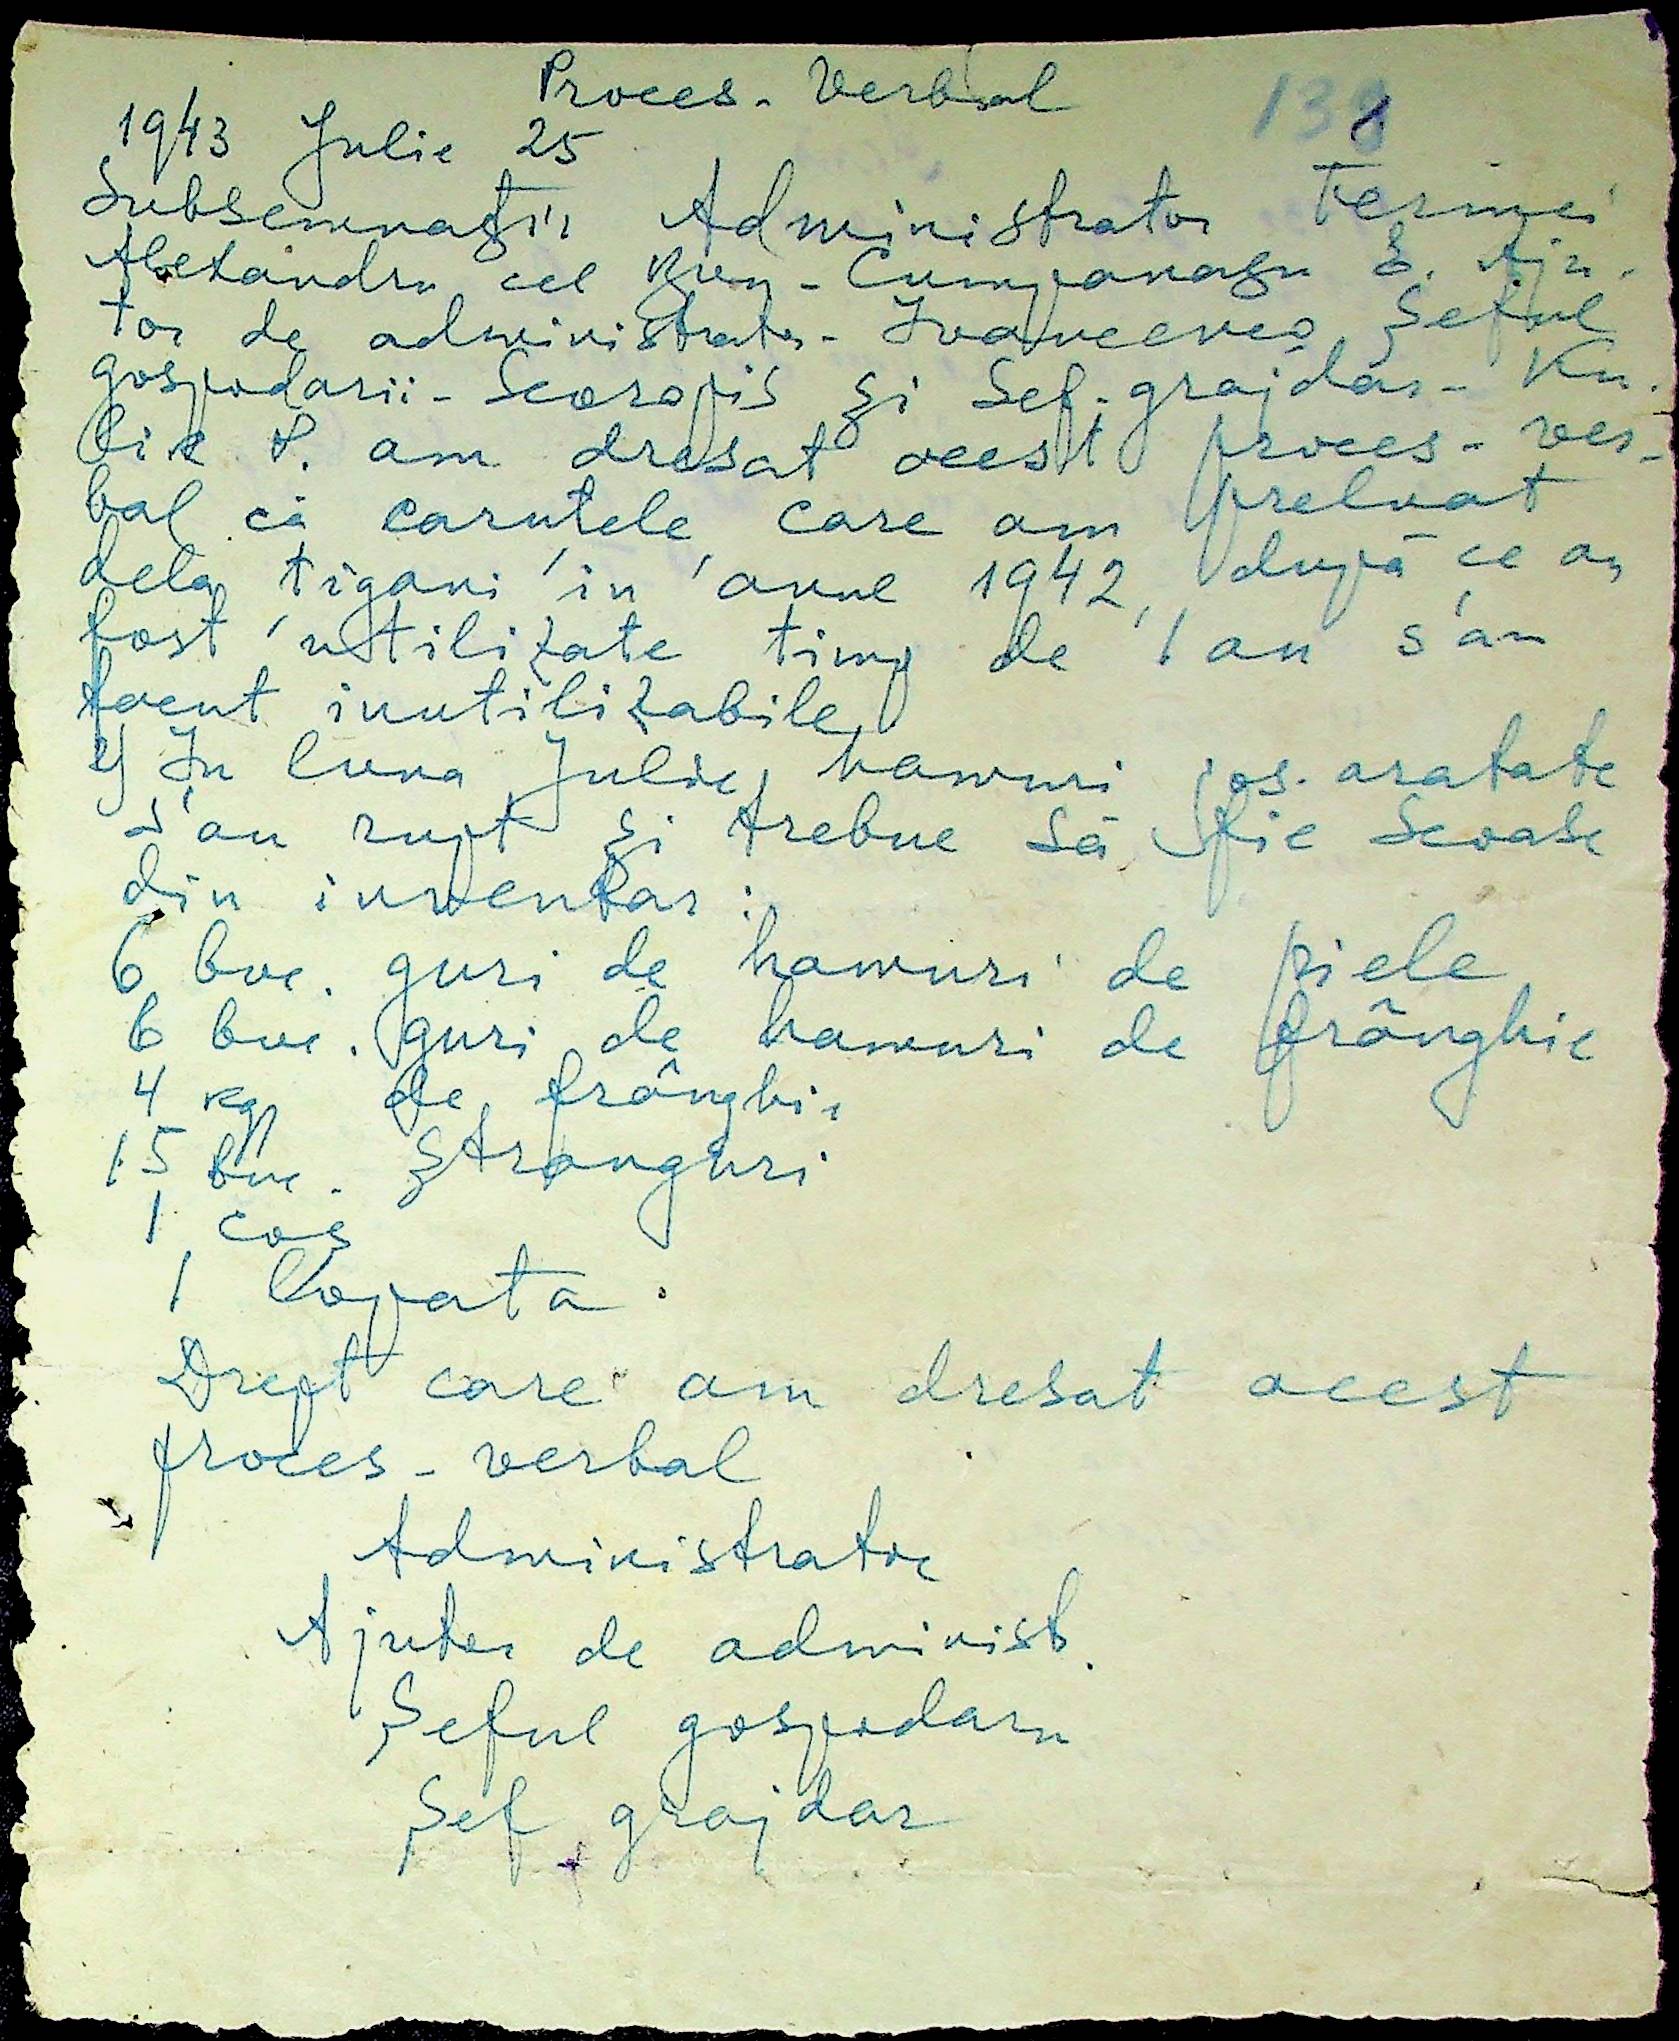 Proces-Verbal
138
1943 Julie 25
Subsemnații Administrator Fermei
Alexandru cel Bun - Cumpanașu E. Aju-
tor de administrator - Ivanceenco Șeful
gospodarii - Scoropis și Șef-grajdar - Ku-
lic P. am dresat acest proces-ver-
bal că carutele care am preluat
dela tigani in anul 1942, după ce au
fost utilizate timp de 1 an s'au
facut inutilizabile
2) In luna Julie, hamuri jos-aratate
s'au rupt și trebue să fie scoase
din inventar:
6 buc. guri de hamuri de piele
6 buc. guri de hamuri de frânghie
4 kg de frânghie
15 buc. ștranguri
1 cos
1 lopata.
Drept care am dresat acest
proces-verbal
Administrator
Ajutor de administ.
Șeful gospodarii
Șef grajdar